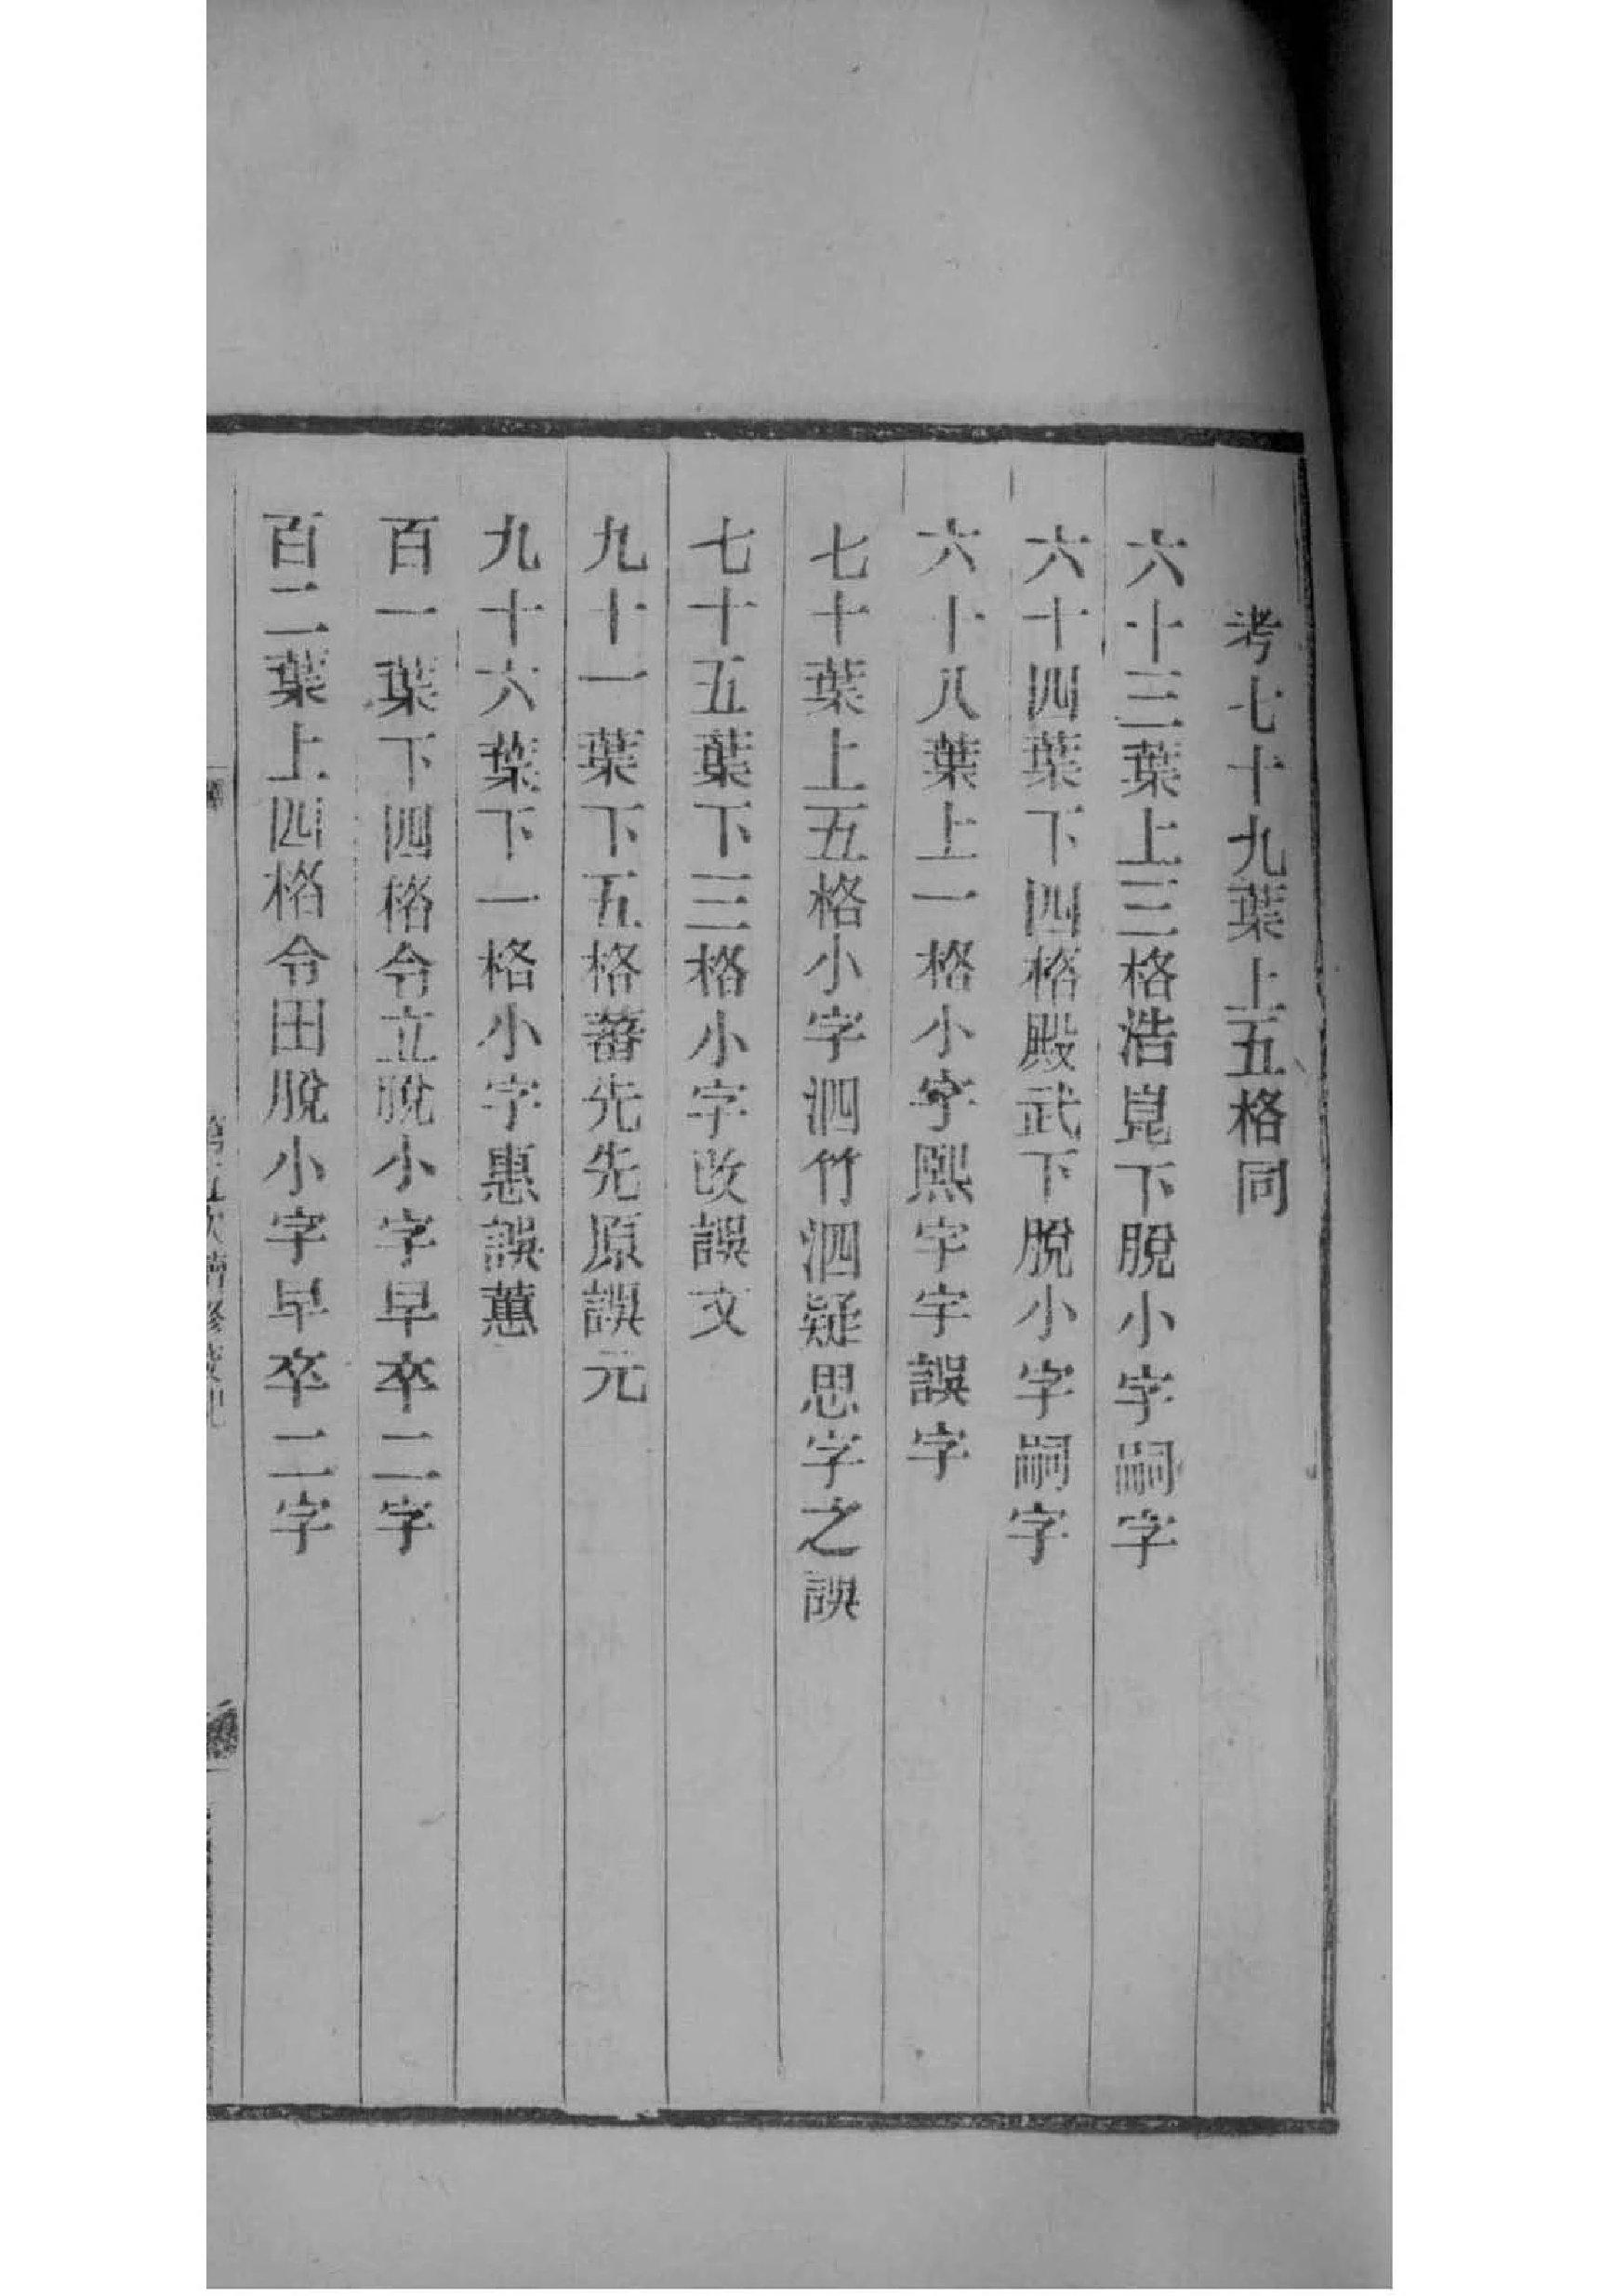 考七十九葉上五格同
六十三葉上三格浩崑下脫小字嗣字
六十四葉下四格殿武下脫小字嗣字
六十八葉上一格小字熙字字誤字
七十葉上五格小字泗竹泗疑思字之誤
七十五葉下三格小字改誤文
九十一葉下五格蕃先先原誤元
九十六葉下一格小字惠誤蕙
百一葉下四格令立脫小字早卒二字
百二葉上四格令田脫小字早卒二字